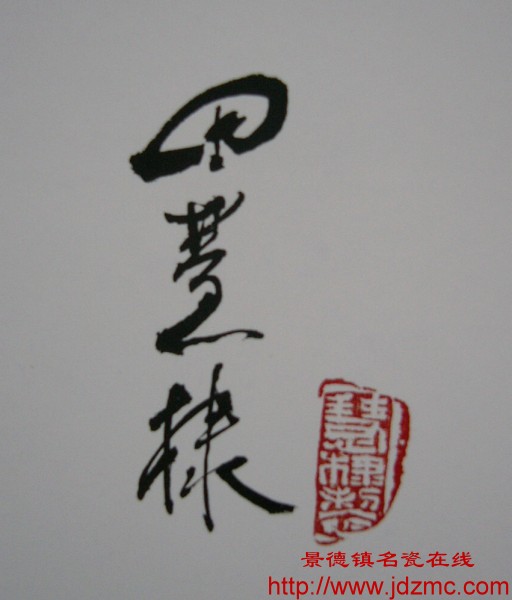 田慧棣
景德镇名瓷在线
http://www.jdzmc.com